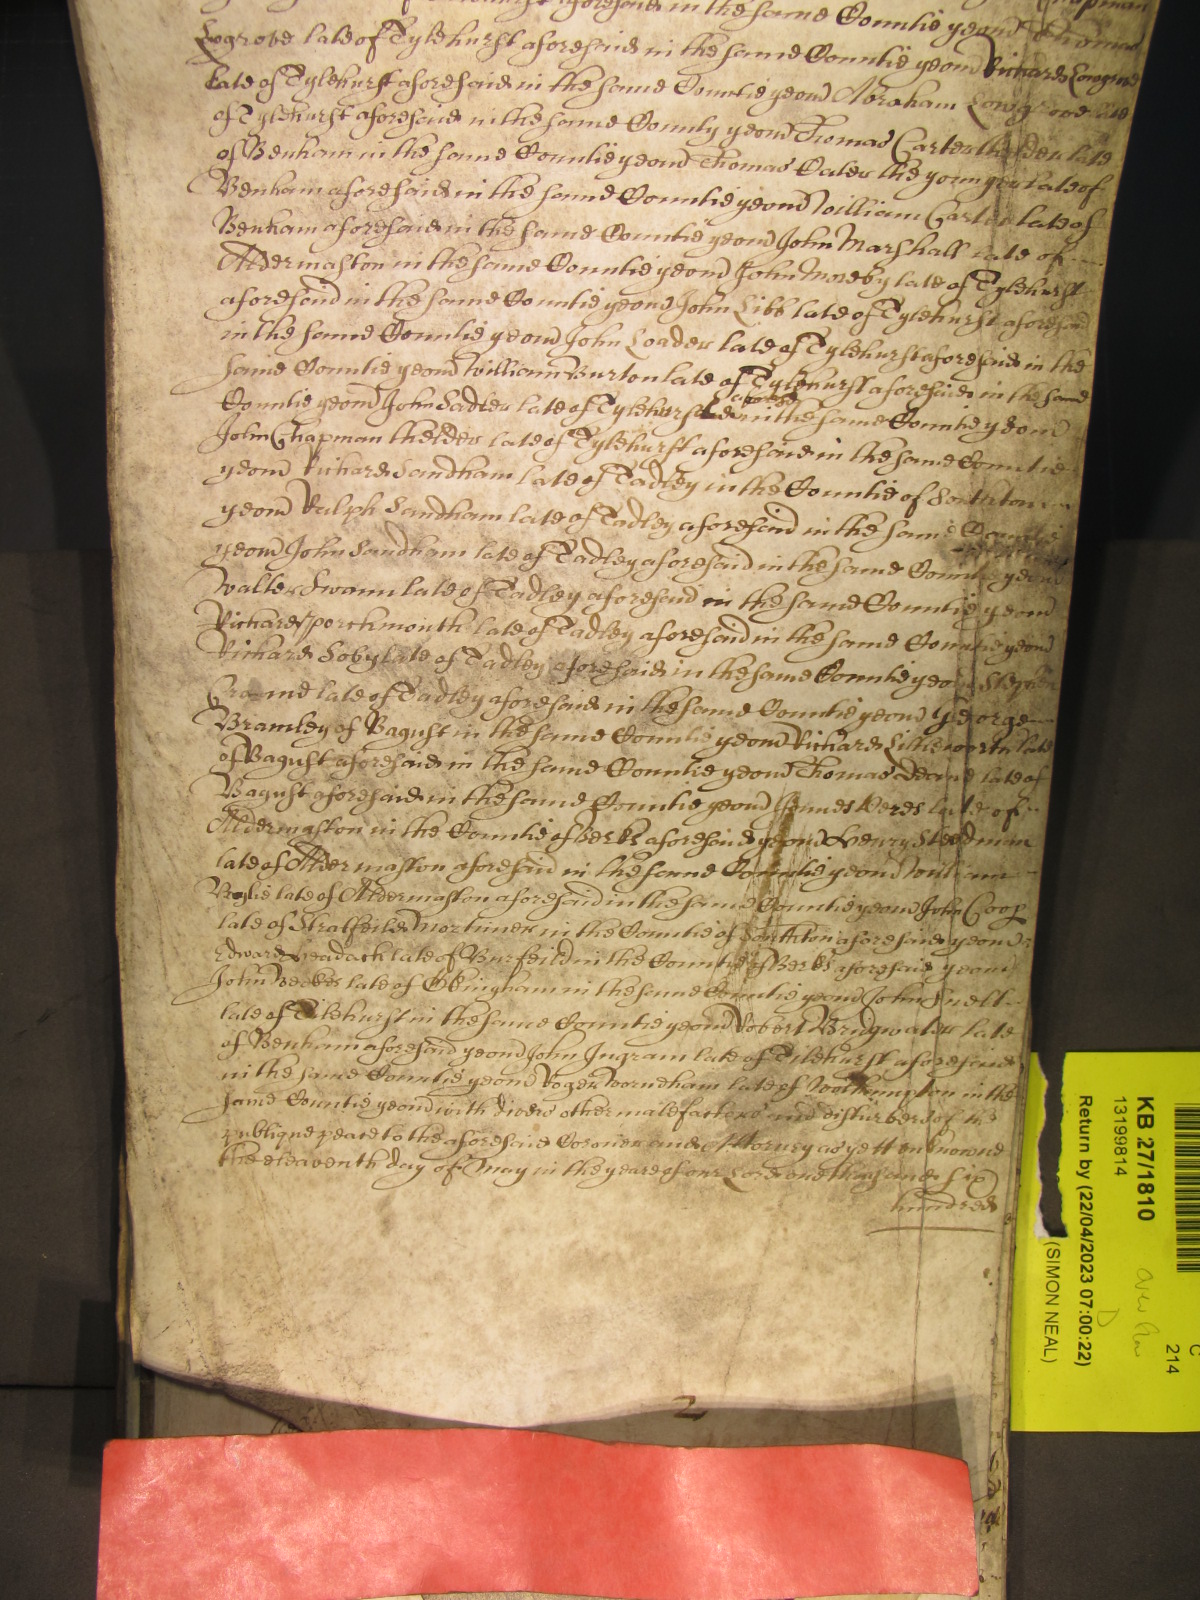 aforesaid in the same Countie yeom Chapman
Logrove late of Tylehurst aforesaid in the same Countie yeom Thomas
late of Tylehurst aforesaid in the same Countie yeom Richard Lowgrove
of Tylehurst aforesaid in the same County yeom Abraham Lowgrove late
of Benham in the same Countie yeom Thomas Carter thelder late
Benham aforesaid in the same Countie yeom Thomas Cater the younger late of
Benham aforesaid in the same Countie yeom William Carter late of
Aldermaston in the same Countie yeom John Marshall late of
aforesaid in the same Countie yeom John Moreby late of Tylehurst
in the same Countie yeom John Libb late of Tylehurst aforesaid
same Countie yeom John Loader late of Tylehurst aforesaid in the
Countie yeom William Burton late of Tylehurst aforesaid in the same
John Sadler late of Tylehurst aforesaid in the same Countie yeom
John Chapman thelder late of Tylehurst aforesaid in the same Countie
yeom Richard Sandham late of Tadley in the Countie of Southton
yeom Ralph Sandham late of Tadley aforesaid in the same Countie
yeom John Sandham late of Tadley aforesaid in the same Countie yeom
Walter Swann late of Tadley aforesaid in the same Countie yeom
Richard Portchmouth late of Tadley aforesaid in the same Countie yeom
Richard Soby late of Tadley aforesaid in the same Countie yeom Stephen
late of Tadley aforesaid in the same Countie yeom George
Bramley of Bagust in the same Countie yeom Richard Littleworth late
of Bagust aforesaid in the same Countie yeom Thomas late of
Bagust aforesaid in the same Countie yeom James Weres late of
Aldermaston in the Countie of Berks aforesaid yeom Henry Steedman
late of Aldermaston aforesaid in the same Countie yeom William
late of Aldermaston aforesaid in the same Countie yeom John Coop
late of Stratfeild Mortimer in the Countie of Southton aforesaid yeom
Edward Headach late of Burfeild in the Countie of Berks aforesaid yeom
John Weekes late of Okingham in the same Countie yeom John Snell
late of Tilehurst in the same Countie yeom Robert Bridgwater late
of Benham aforesaid yeom John Ingram late of Tilehurst aforesaid
in the same Countie yeom Roger Worndham late of Woolhampton in the
same Countie yeom with divers other malefactors and disturbers of the
publique peace to the aforesaid Coroner and Attorney as yett unknowne
the eleaventh day of May in the yeare of our Lord one thousand six
hundred
2
KB 27/1810
13199814
Return by (22/04/2023 07:00:22)
(SIMON NEAL)
214
C
D